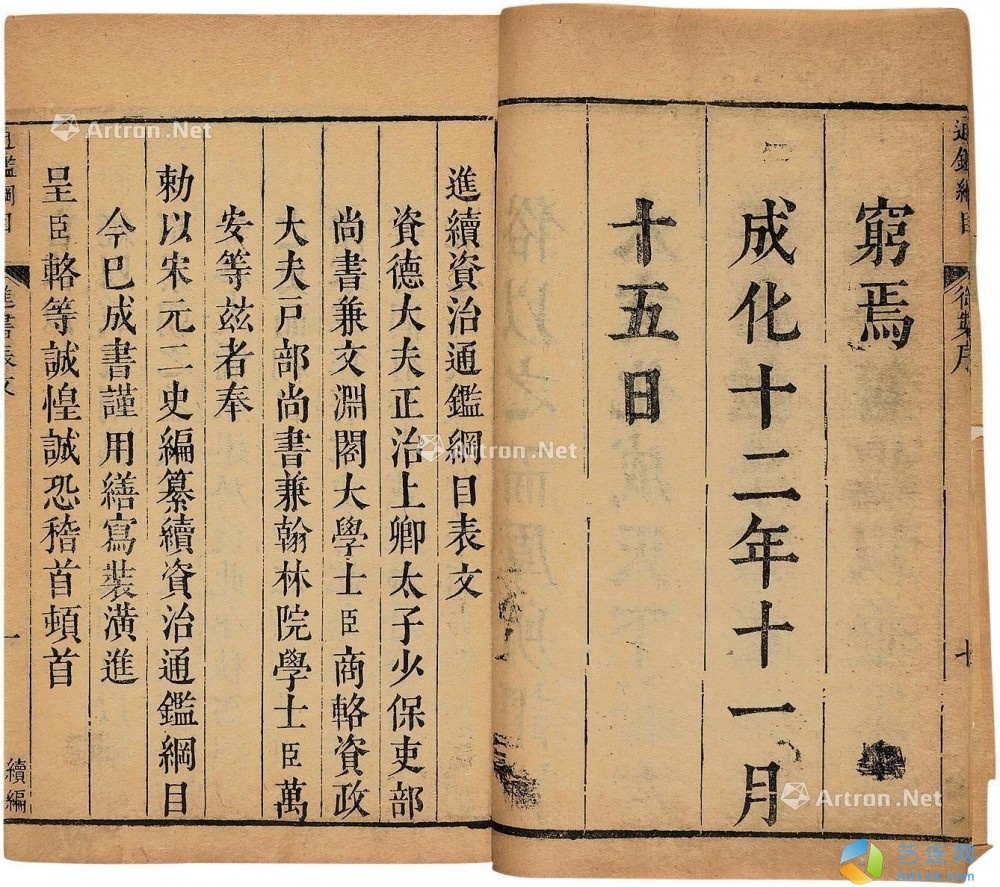 通鑑綱目
御製序
窮焉
成化十二年十一月
十五日
進續資治通鑑綱目表文
資德大夫正治上卿太子少保吏部
尚書兼文淵閣大學士臣商輅資政
大夫戶部尚書兼翰林院學士臣萬
安等玆者奉
勅以宋元二史編纂續資治通鑑綱目
今巳成書謹用繕寫裝潢進
呈臣輅等誠惶誠恐稽首頓首
通鑑綱目
進書表文
一
續編
Artron.Net
Artron.Net
Artron.Net